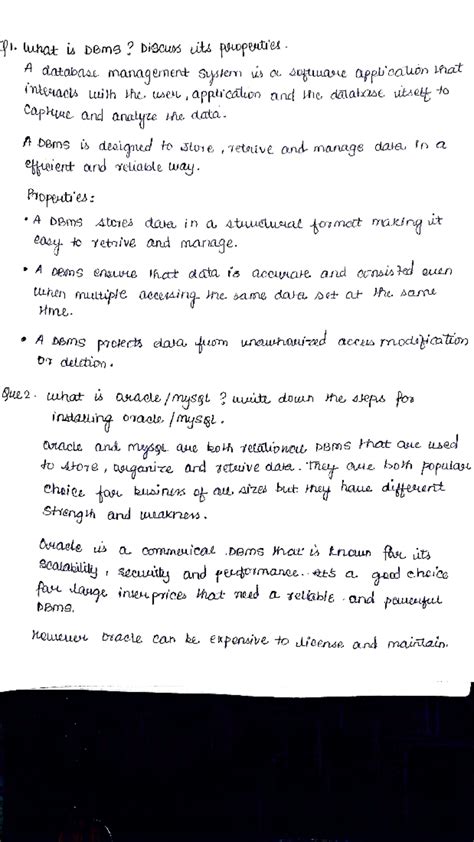 Q1. What is DBMS? Discuss its properties.
A database management system is a software application that
interacts with the user, application and the database itself to
capture and analyze the data.
A DBMS is designed to store, retrive and manage data in a
efficient and reliable way.
Properties:
• A DBMS stores data in a structural formatt making it
easy to retrive and manage.
• A DBMS ensure that data is accurate and consisted even
when multiple accessing the same data set at the same
time.
• A DBMS protects data from unauthorized access modification
or deletion.
Que 2. What is oracle/mysql? write down the steps for
installing oracle/mysql.
Oracle and mysql are both relational DBMS that are used
to store, organize and retrive data. They are both popular
choice for business of all sizes but they have different
strength and weakness.
Oracle is a commerical DBMS that is known for its
scalability, security and performance. It's a good choice
for large interprices that need a reliable and powerful
DBMS.
However oracle can be expensive to license and maintain.